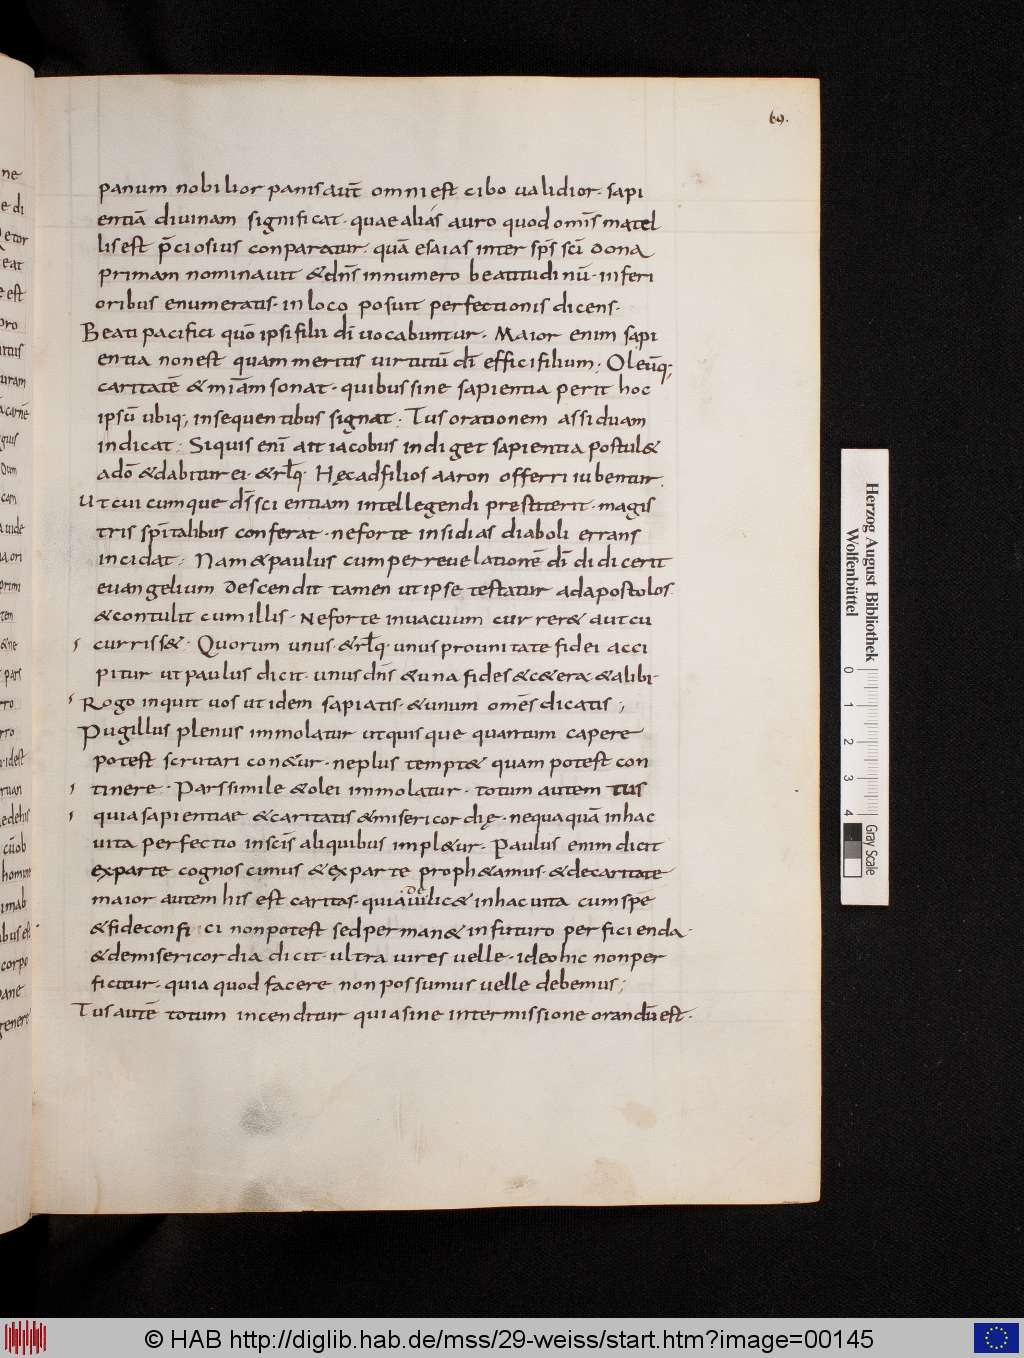 69.
panum nobilior panis aut̄ omni est cibo ualidior. sapi
entiā diuinam significat. quae alias auro quod om̄is matel
lis est p̄ciosius conparatur. quā esaias inter sp̄s sc̄i dona
primam nominauit &dn̄s in numero beatitudinū. inferi
oribus enumeratis. in loco posuit perfectionis dicens.
Beati pacifici quō ipsi filii dī uocabuntur. Maior enim sapi
entia non est quam meritis uirtutū dī effici filium; Oleūq;
caritatē & mi͞am sonat. quibus sine sapientia perit hoc
ipsū ubiq; in sequentibus signat. Tus orationem assiduam
indicat. Siquis enī ait iacobus indiget sapientia postul&
adō & dabitur ei. & rłq. Hęc ad filios aaron offerri iubentur.
Ut cuicumque dś scientiam intellegendi prestiterit. magis
tris sp̄italibus conferat. ne forte insidias diaboli errans
incidat. Nam & paulus cum per reuelationē dī didicerit
euangelium descendit tamen ut ipse testatur ad apostolos.
& contulit cum illis. Neforte in uacuum currer& aut cu
curriss&. Quorum unus. & rłq. unus pro unitate fidei acci
pitur ut paulus dicit. unus dn̄s & una fides & c&era. & alibi.
Rogo inquit uos ut idem sapiatis. & unum om̄es dicatis;
Pugillus plenus immolatur ut quisque quantum capere
potest scrutari con&ur. ne plus tempt& quam potest con
tinere. Pars simile & olei immolatur. totum autem tus
quia sapientiae & caritatis & misericordię. nequaquā in hac
uita perfectio in sc̄is aliquibus impl&ur. Paulus enim dicit
ex parte cognoscimus & ex parte proph&amus. & de caritate
maior autem his est caritas. quia uidelic& in hac uita cum spē
& fide confici non potest sed perman& in futuro perficienda.
& de misericordia dicit. ultra uires uelle. ideo hic non per
ficitur. quia quod facere non possumus uelle debemus;
Tus autē totum incenditur quia sine intermissione orandū est.
Herzog August Bibliothek
Wolfenbüttel
0 1 2 3 4
Gray Scale
© HAB http://diglib.hab.de/mss/29-weiss/start.htm?image=00145